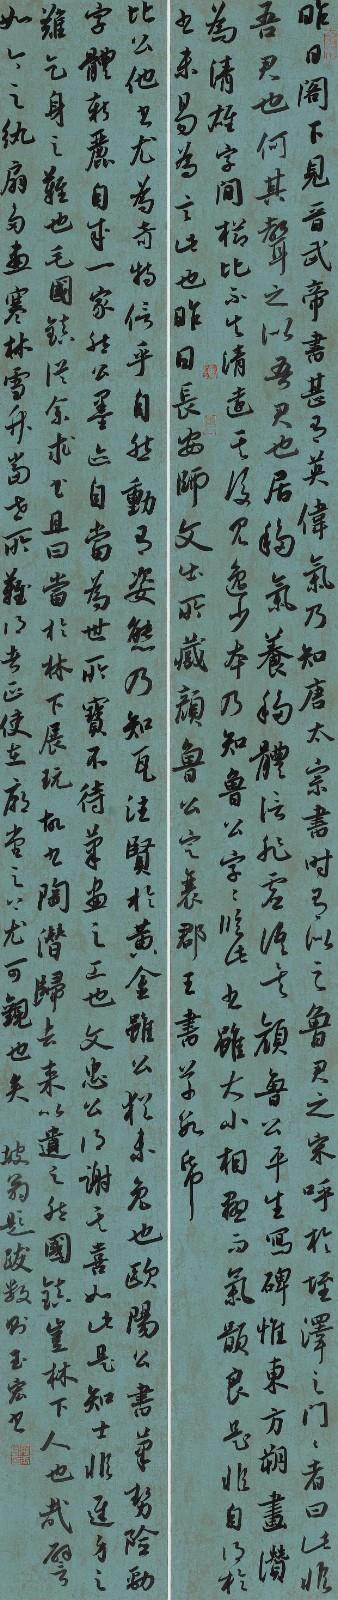 昨日閣下見晉武帝書甚有英偉氣乃知唐太宗書時有似之魯君之宋呼於垤澤之門〻者曰此非
吾君也何其聲之似吾君也居移氣養移體信非虛語矣顏魯公平生寫碑惟東方朔畫讚
為清雄字間櫛比不失清遠其後見逸少本乃知魯公字〻臨此書雖大小相懸而氣韻良是非自得於
書未易為言此也昨日長安師文出所藏顏魯公定襄郡王書草數紙
比公他書尤為奇特信乎自然動有姿態乃知瓦注賢於黃金雖公猶未免也歐陽公書筆勢險勁
字體新麗自成一家然公墨迹自當為世所寶不待筆畫之工也文忠公得謝其喜如此是知士非進身之
難乞身之難也毛國鎮從余求書且曰當於林下展玩故書陶潛歸去來以遺之然國鎮豈林下人也哉譬
如今之紈扇多畫寒林雪竹當世所難得者正使在廟堂之上尤可觀也矣 坡翁題跋數則玉宏書